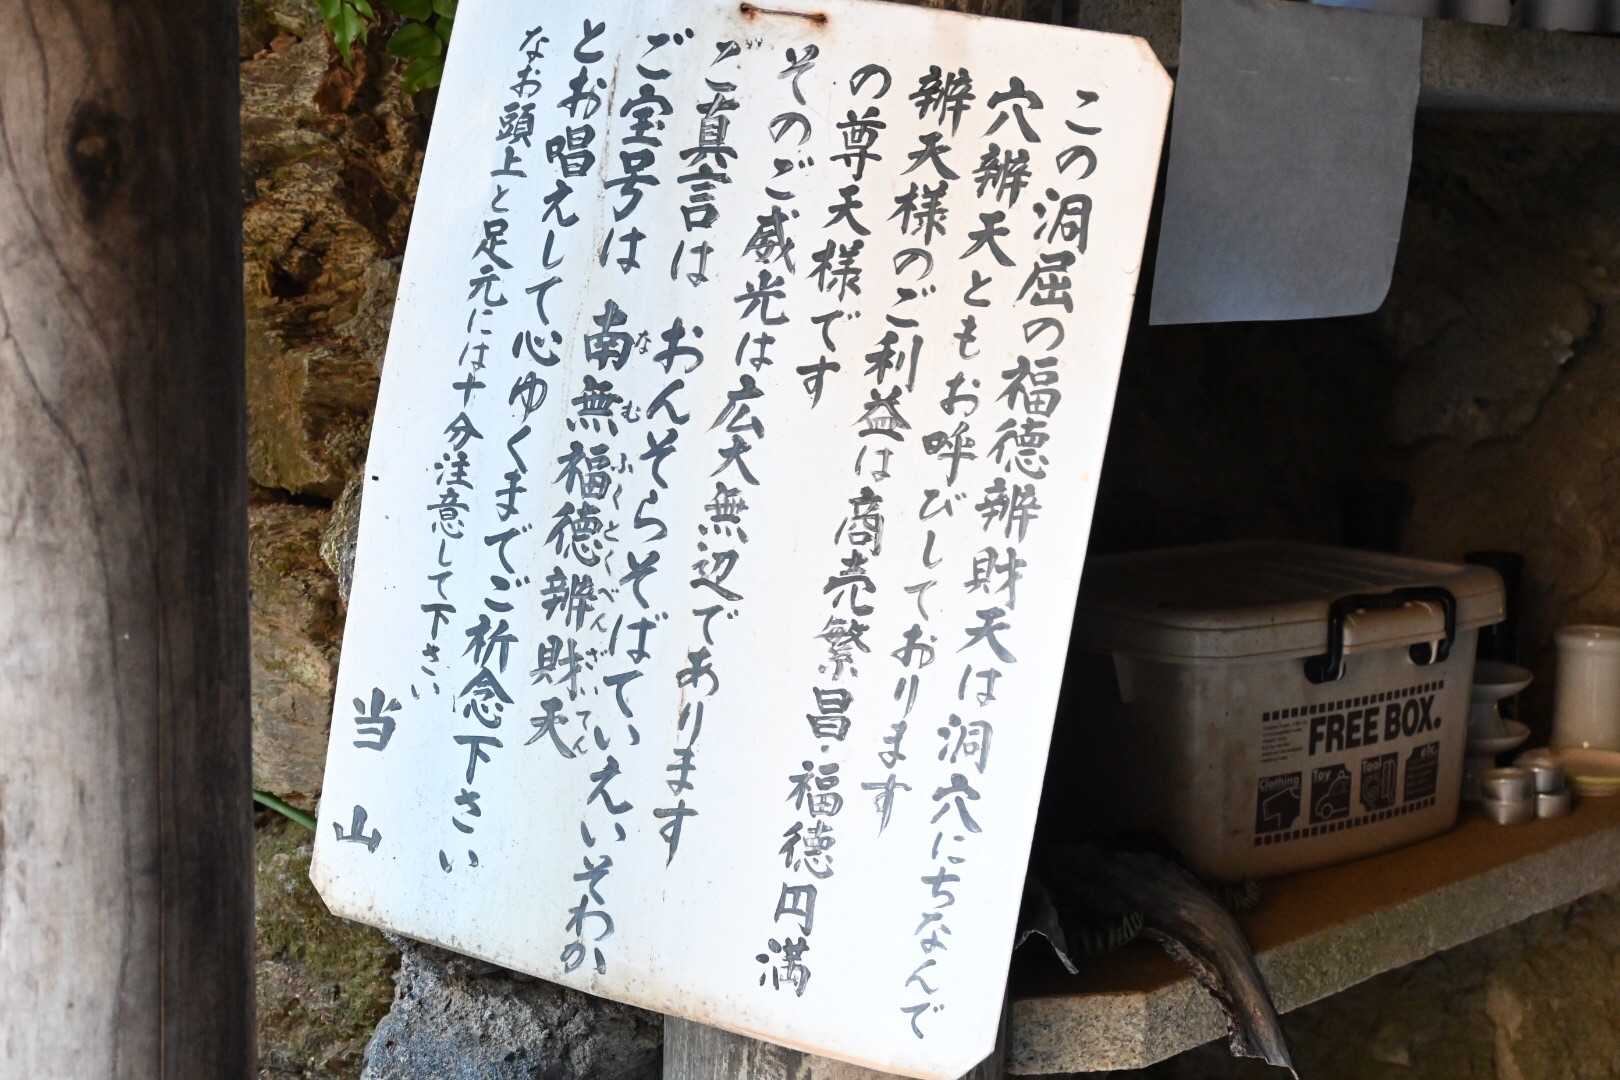 この洞屈の福徳辨財天は洞穴にちなんで
穴辨天ともお呼びしております
辨天様のご利益は商売繁昌・福徳円満
の尊天様です
そのご威光は広大無辺であります
ご真言は おんそらそばていえいそわか
ご宝号は 南無福徳辨財天
なむふくとくべんざいてん
とお唱えして心ゆくまでご祈念下さい
なお頭上と足元には十分注意して下さい
当山
FREE BOX.
Clothing Toy Tool etc.